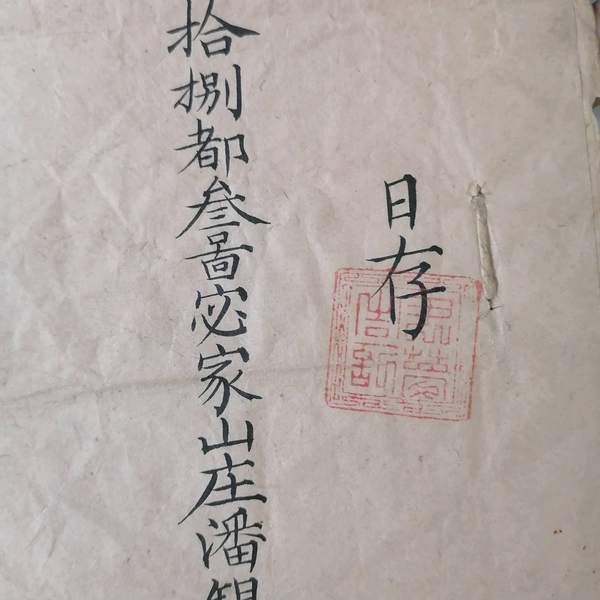 日存
拾捌都叁啚宓家山庄潘